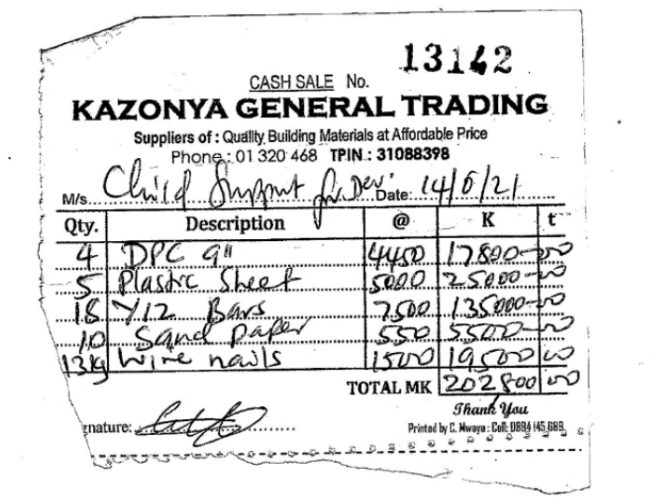 13142
CASH SALE No.
KAZONYA GENERAL TRADING
Suppliers of : Quality Building Materials at Affordable Price
Phone : 01 320 468 TPIN.: 31088398
M/s. Child Support for Dev. Date: 14/6/21
Qty. Description @ K t
4 DPC 9" 4450 17800-00
5 Plastic Sheet 5000 25000-00
18 Y12 Bars 7500 135000-00
10 Sand paper 550 5500-00
13kg Wire nails 1500 19500 00
TOTAL MK 202800 00
Thank You
gnature:
Printed by C. Mwaya : Cell: 0884 145 689